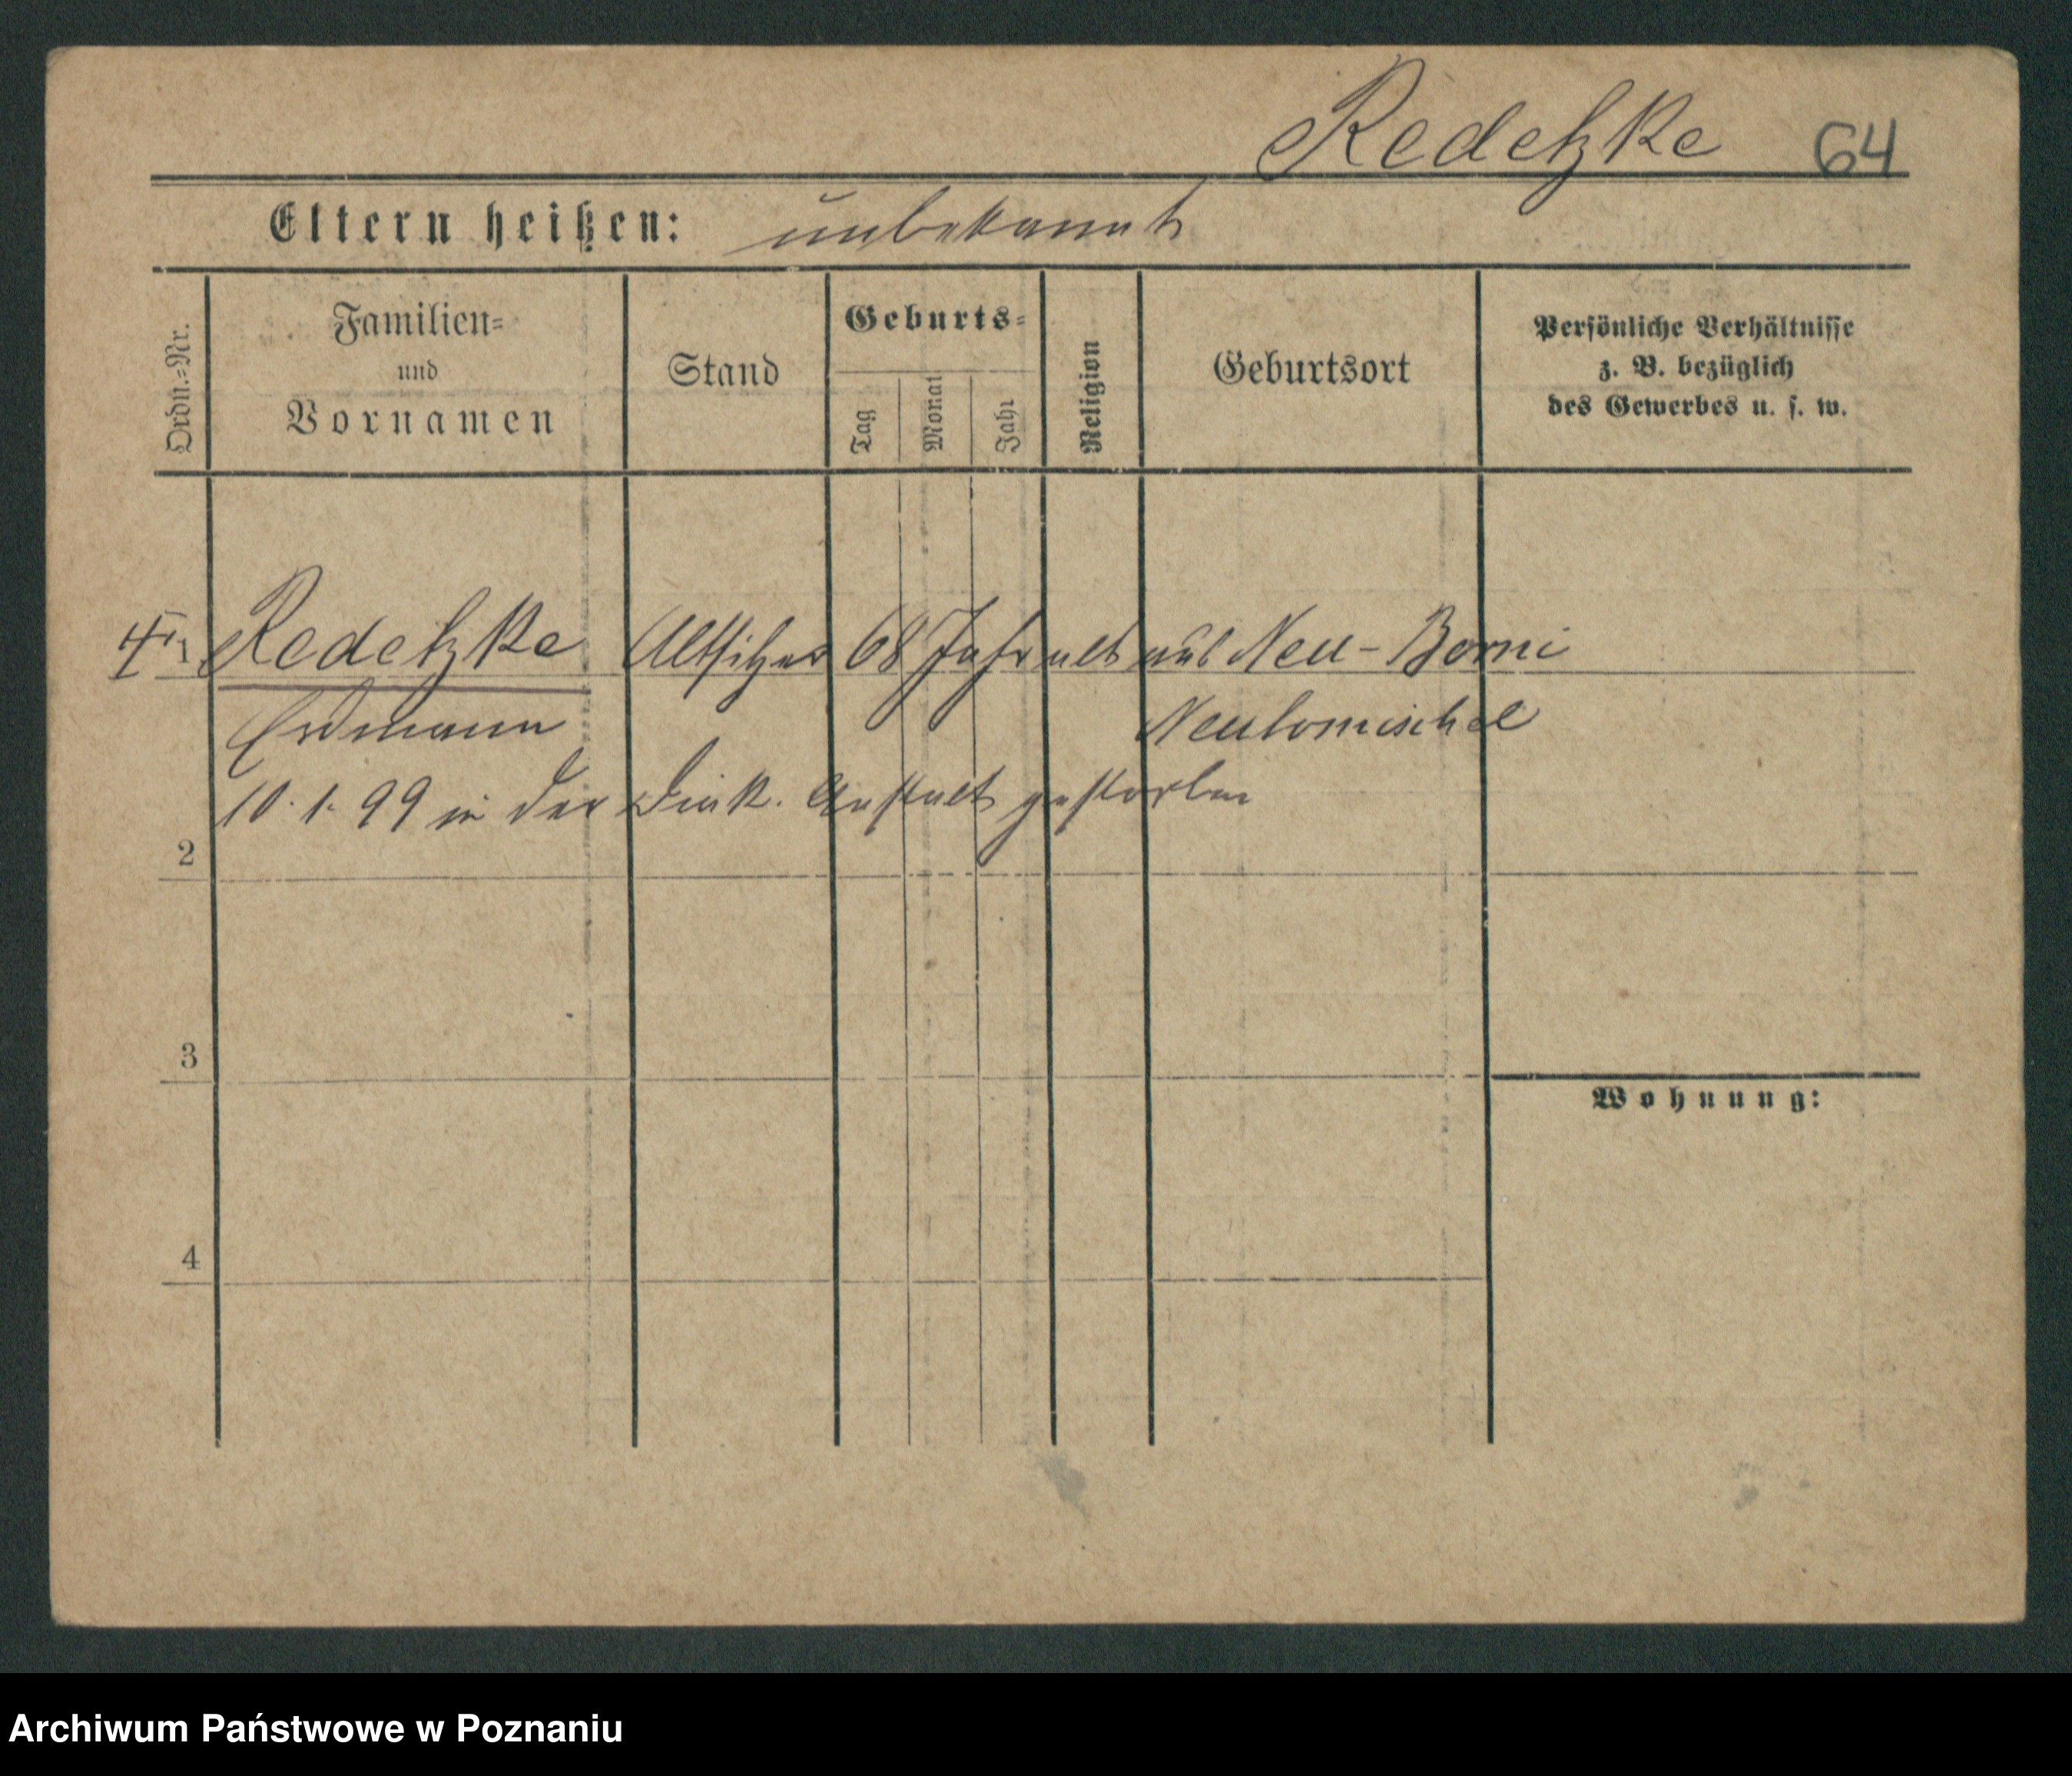 Redetzke 64
Eltern heißen: unbekannt
Ordn.-Nr.
Familien-
und
Vornamen
Stand
Geburts-
Tag
Monat
Jahr
Religion
Geburtsort
Persönliche Verhältnisse
z. B. bezüglich
des Gewerbes u. s. w.
Redetzke Altsitzer 68 Jahr alt aus Neu-Borui
Erdmann Neutomischel
10. 1. 99 in der Diak. Anstalt gestorben
2
3
Wohnung:
4
Archiwum Państwowe w Poznaniu